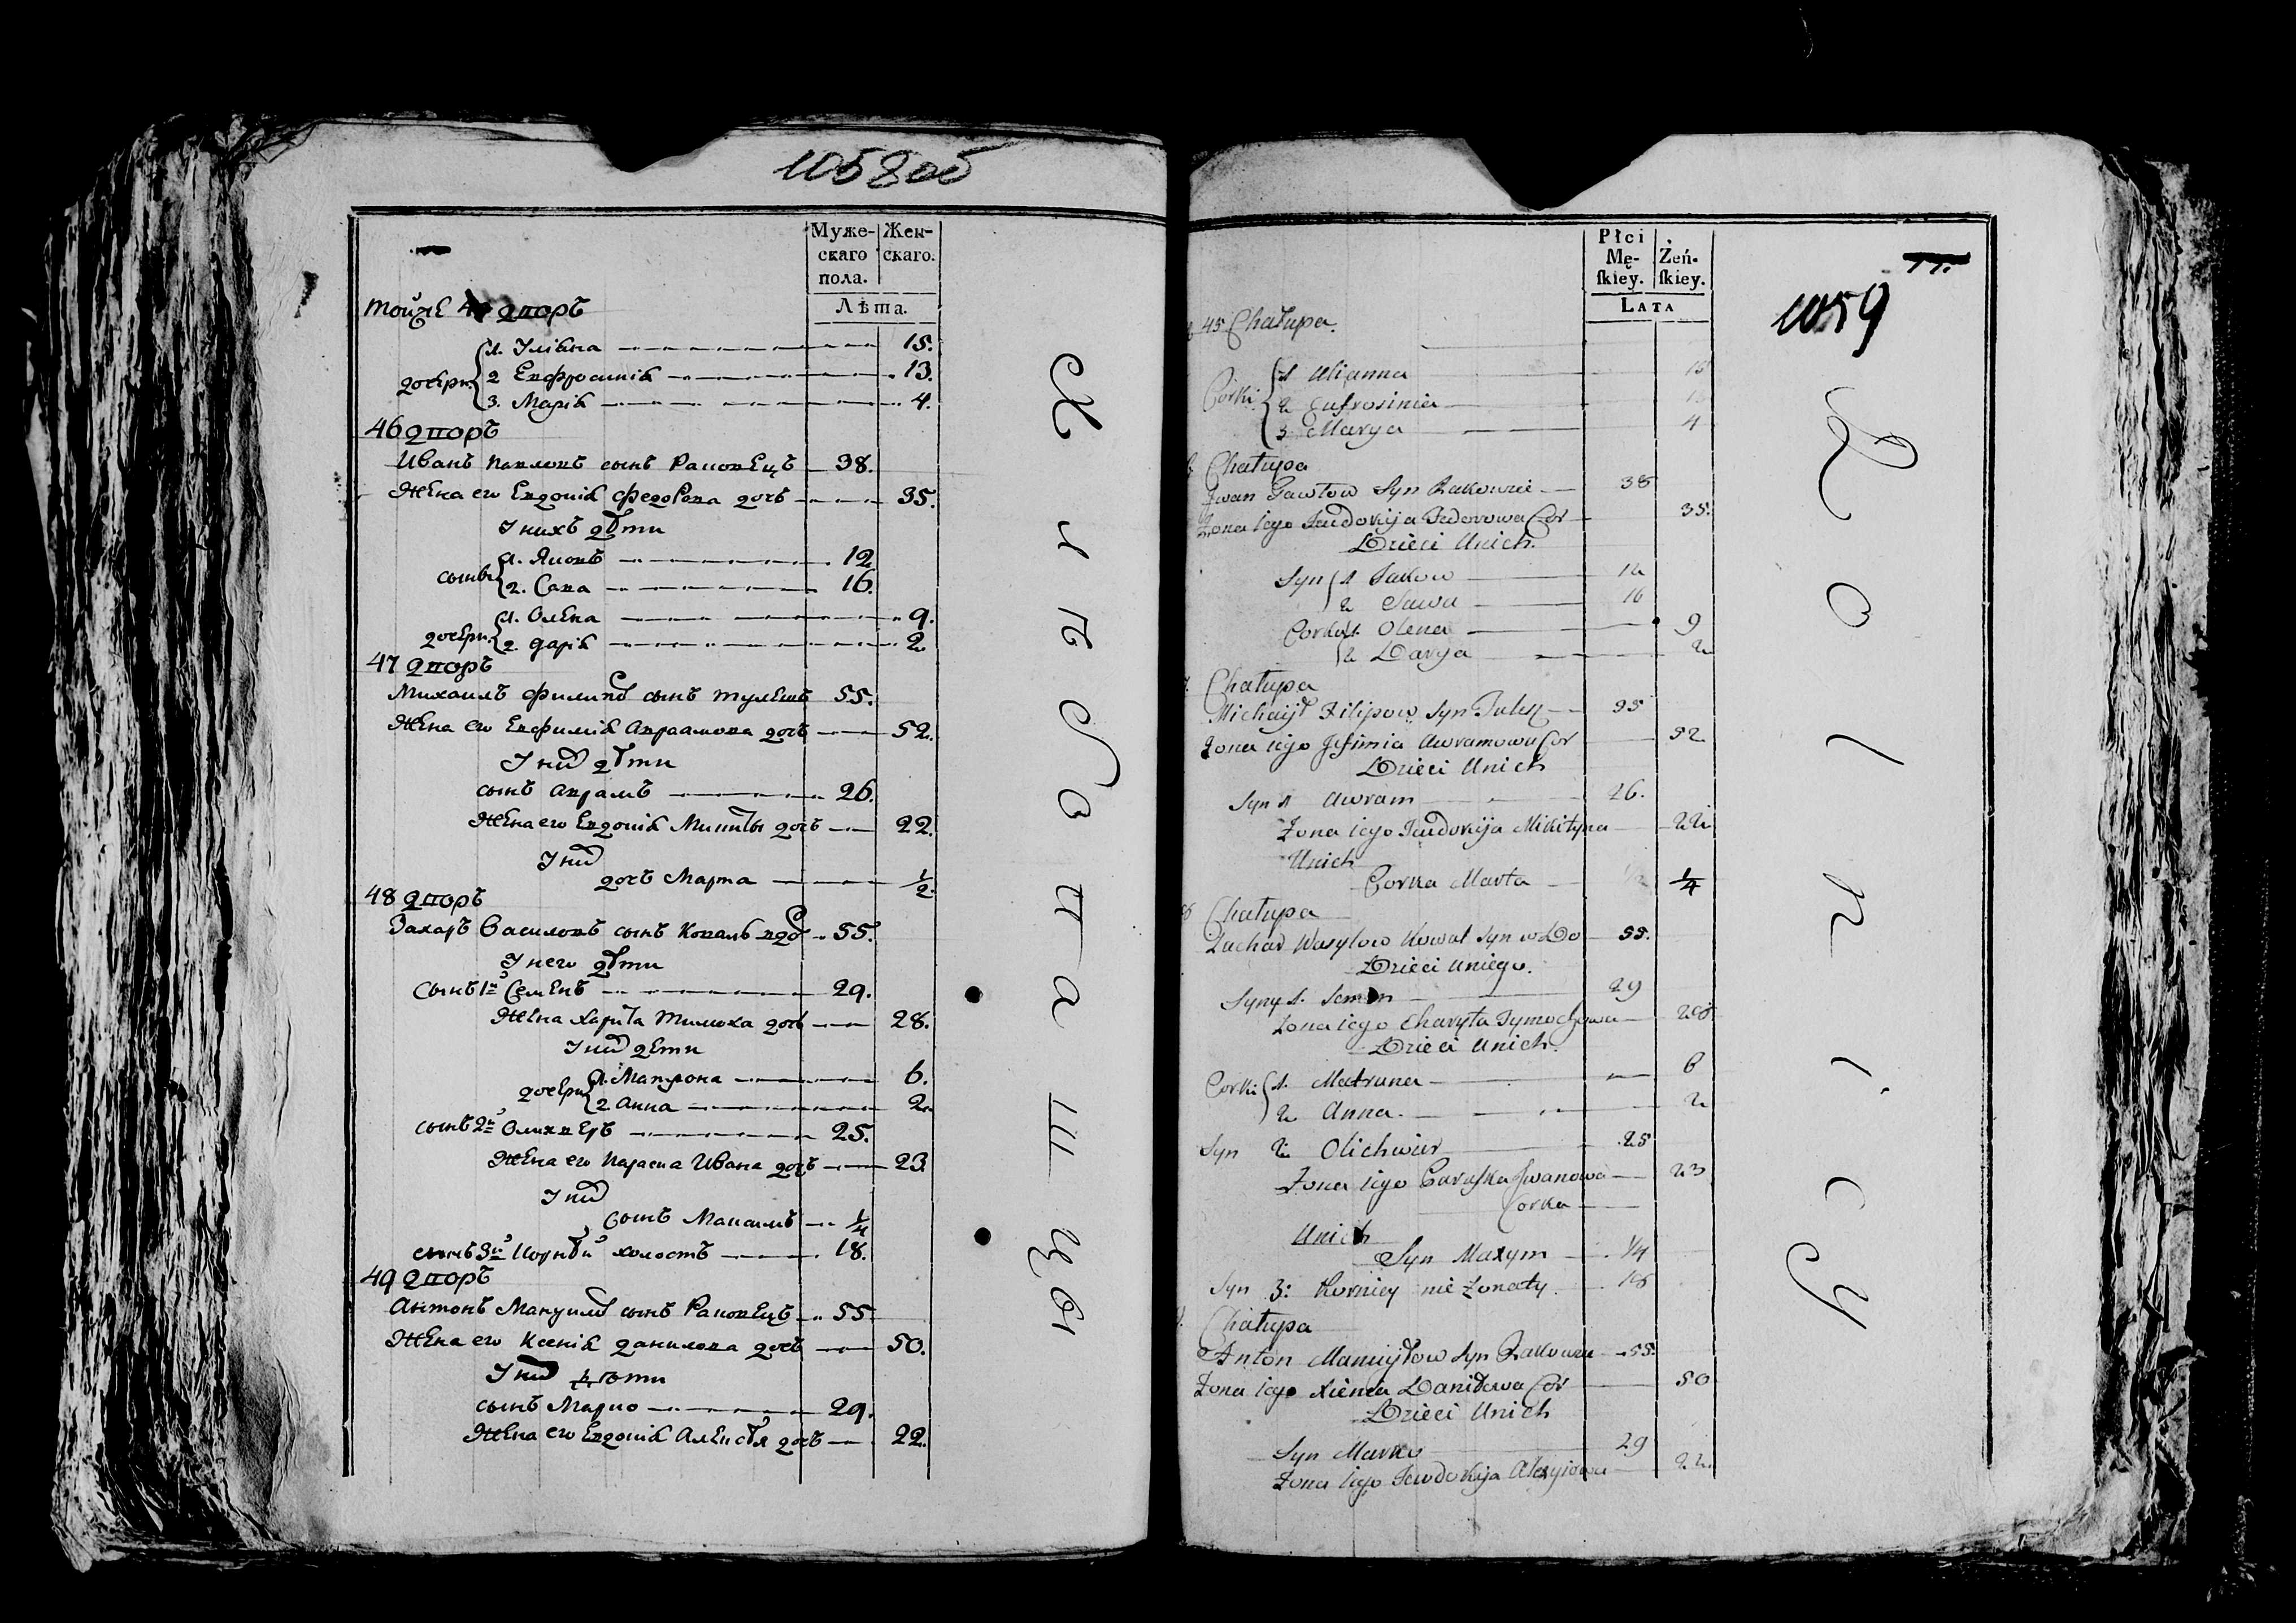 1058об
Муже-
скаго
пола.
Жен-
скаго.
Лѣта.
тойже 45 дворъ
дочери
1. Улiяна 15.
2 Евфросинiя 13.
3. Марiя 4.
46 дворъ
Иванъ Павловъ сынъ Раковецъ 38.
Жена его Евдокiя Федорова дочь 35.
У нихъ дѣти
сынъ
1. Яковъ 12
2. Сава 16.
дочери
1. Олена 9.
2. Дарiя 2.
47 дворъ
Михаилъ Филиповъ сынъ Тулешъ 55.
Жена его Евфимiя Авраамова дочь 52.
У них дѣти
сынъ Аврамъ 26.
Жена его Евдокiя Микиты дочь 22.
У них
дочь Марта 1/2.
48 дворъ
Захаръ Василовъ сынъ Коваль вдов 55.
У него дѣти
Сынъ 1й Семенъ 29.
Жена Харита Тимоха дочь 28.
У них дети
дочери
1. Матрона 6.
2 Анна 2.
сынъ 2й Олихверъ 25.
Жена его Параска Ивана дочь 23
У них
Сынъ Максимъ 1/4
сынъ 3й Корнѣй холостъ 18.
49 дворъ
Антонъ Мануилов сынъ Раковецъ 55
Жена его Ксенiя Данилова дочь 50.
У них дѣти
сынъ Марко 29.
Жена его Евдокiя Алексѣя дочь 22.
Хлѣбопашцы
Płci
Mę-
ſkiey.
Żeń-
ſkiey.
LATA
1059
45 Chałupa.
Corki
1 Ulianna 15
2 Eufrosinia 13
3 Marya 4
Chałupa
Iwan Pawłow Syn Rakowiec 38
Zona iego Jewdokija Fedorowa Cor 35.
Dzieci Unich.
Syn
1 Jakow 12
2 Sawa 16
Corka
1. Olena 9
2 Darya 2
Chałupa
Michaył Filipow Syn Tulesz 55
Zona iego Jefimia Awramowa Cor 52
Dzieci Unich
Syn 1 Awram 26.
Zona iego Jewdokija Mikityna 22
Unich
Corka Marta 1/4
Chałupa
Zachar Wasylow Kowal Syn wdo 55.
Dzieci Uniego.
Syny 1. Semen 29
Zona iego Charyta Tymochowa 28
Dzieci Unich.
Corki
1. Matruna 6
2 Anna. 2
Syn 2 Olichwier 25
Zona iego Paraſka Iwanowa 23
Corka
Unich
Syn Maxym 1/4
Syn 3: Korniey nie żonaty. 18
Chałupa
Anton Manuyłow Syn Rakowiec 55.
Zona iego Xienia Daniłowa Cor 50
Dzieci Unich
Syn Marko 29
Zona iego Jewdokija Alexyiowa 22.
Rolnicy